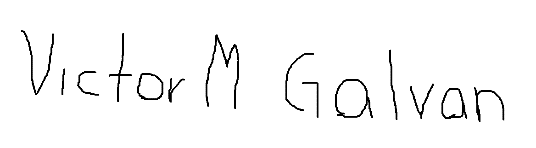 Victor M Galvan